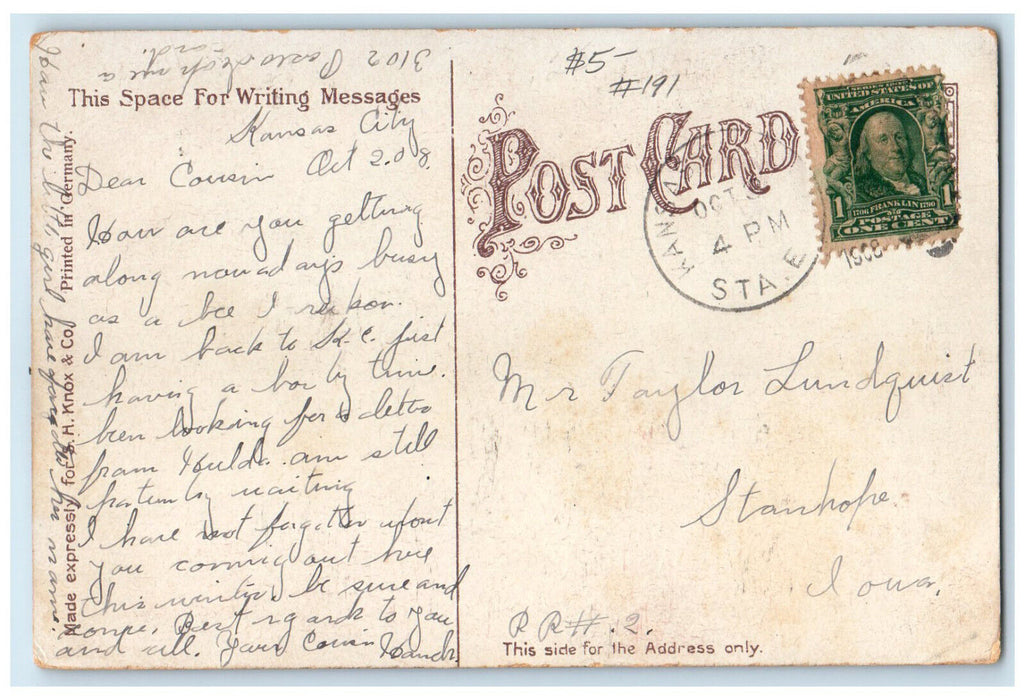 This Space For Writing Messages
Kansas City
Oct 2. 08.
Dear Cousin
How are you getting
along nowadays busy
as a bee I reckon.
I am back to K.C. just
having a by time.
been looking for a
from Hulda. am still
waiting
I have not forgotten about
you coming out here
this winter. be sure and
come. Best regards to you
and all. Your Cousin
3102
card.
How the little girl have
Made expressly for S. H. Knox & Co. Printed in Germany.
#5-
#191
POST CARD
KANSA
OCT
4 PM
STA. E
1908
SERIES 1902
UNITED STATES OF
AMERICA
1706 FRANKLIN 1790
POSTAGE
1 ONE CENT 1
Mr Taylor Lundquist
Stanhope.
Iowa.
RR#.2.
This side for the Address only.